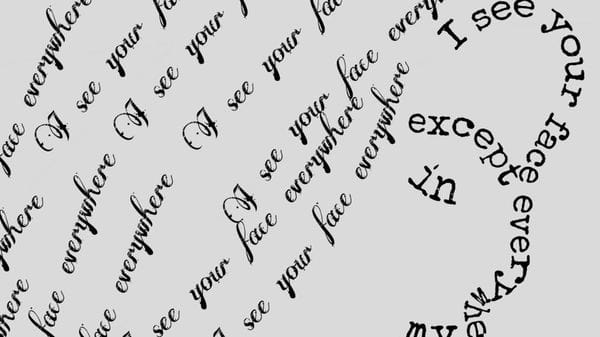 face everywhere
I see your face
I see your fa
I see your fa
I see your face every
here
here
face everywhere
face everywhere
see your face everywhere
see your face everywhere
I see your face everywhe
except
in
my